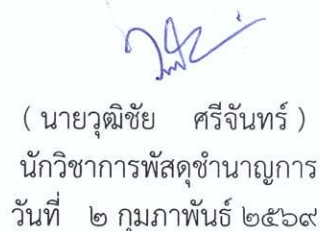 ( นายวุฒิชัย ศรีจันทร์ )
นักวิชาการพัสดุชำนาญการ
วันที่ ๒ กุมภาพันธ์ ๒๕๖๙